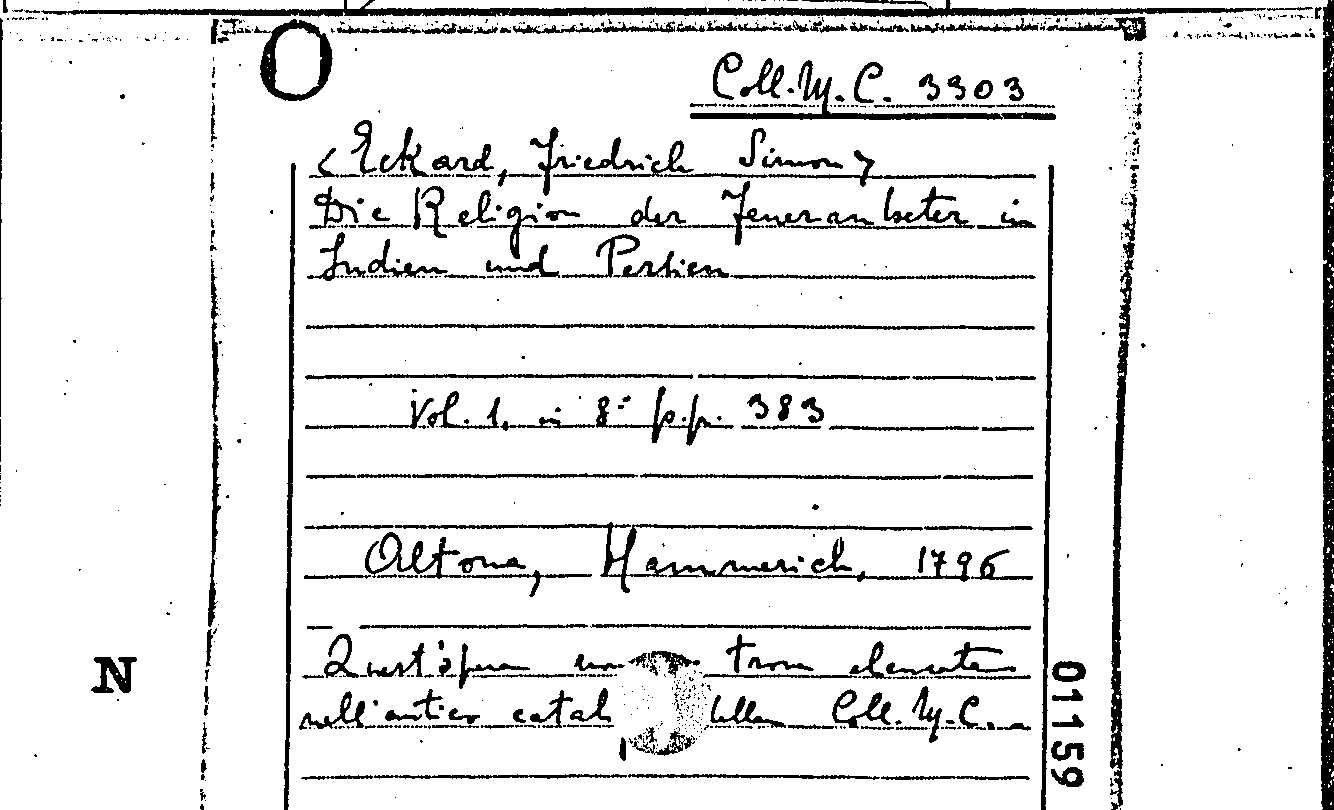 O
Coll. M. C. 3303
< Eckard, Friedrich Simon >
Die Religion der Feueranbeter in
Indien und Persien
Vol. 1, in 8° pp. 383
Altona, Hammerich, 1796
Quest'opera non trova elencata
nell'antico catal della Coll. M. C.
N
01159